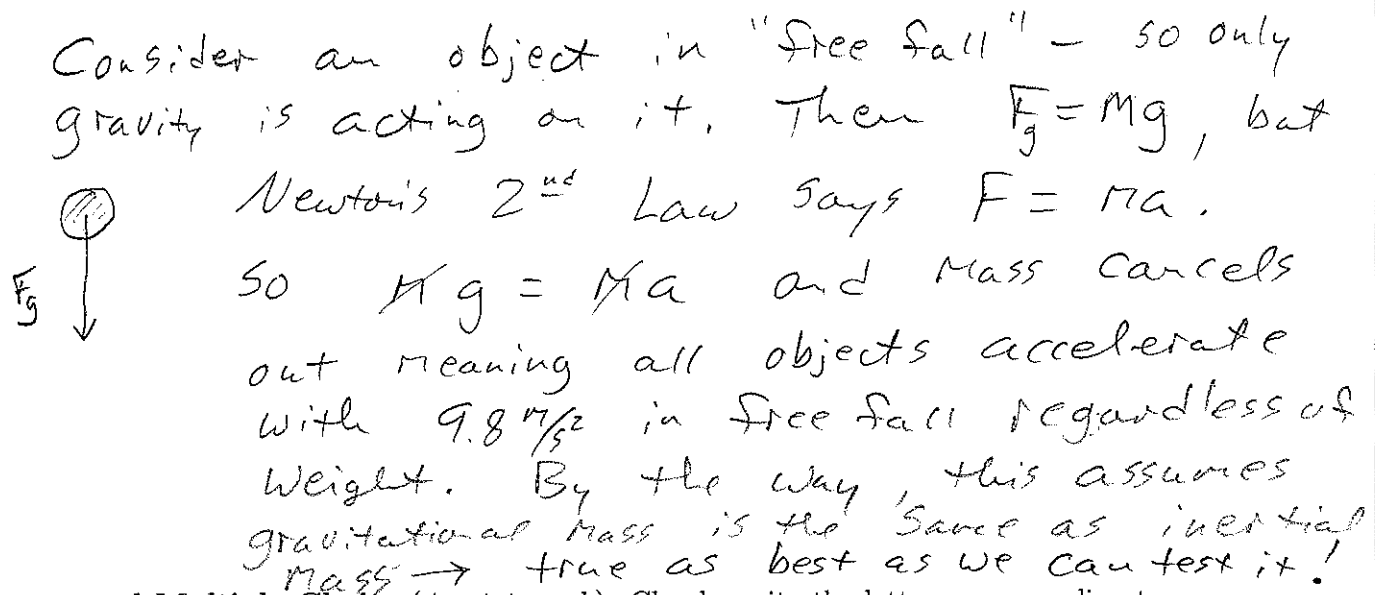 Consider an object in "free fall" - so only
gravity is acting on it. Then Fg = Mg, but
Newton's 2nd Law says F = Ma.
Fg
So Mg = Ma and Mass cancels
out meaning all objects accelerate
with 9.8 m/s² in free fall regardless of
weight. By the way, this assumes
gravitational mass is the same as inertial
Mass → true as best as we can test it!